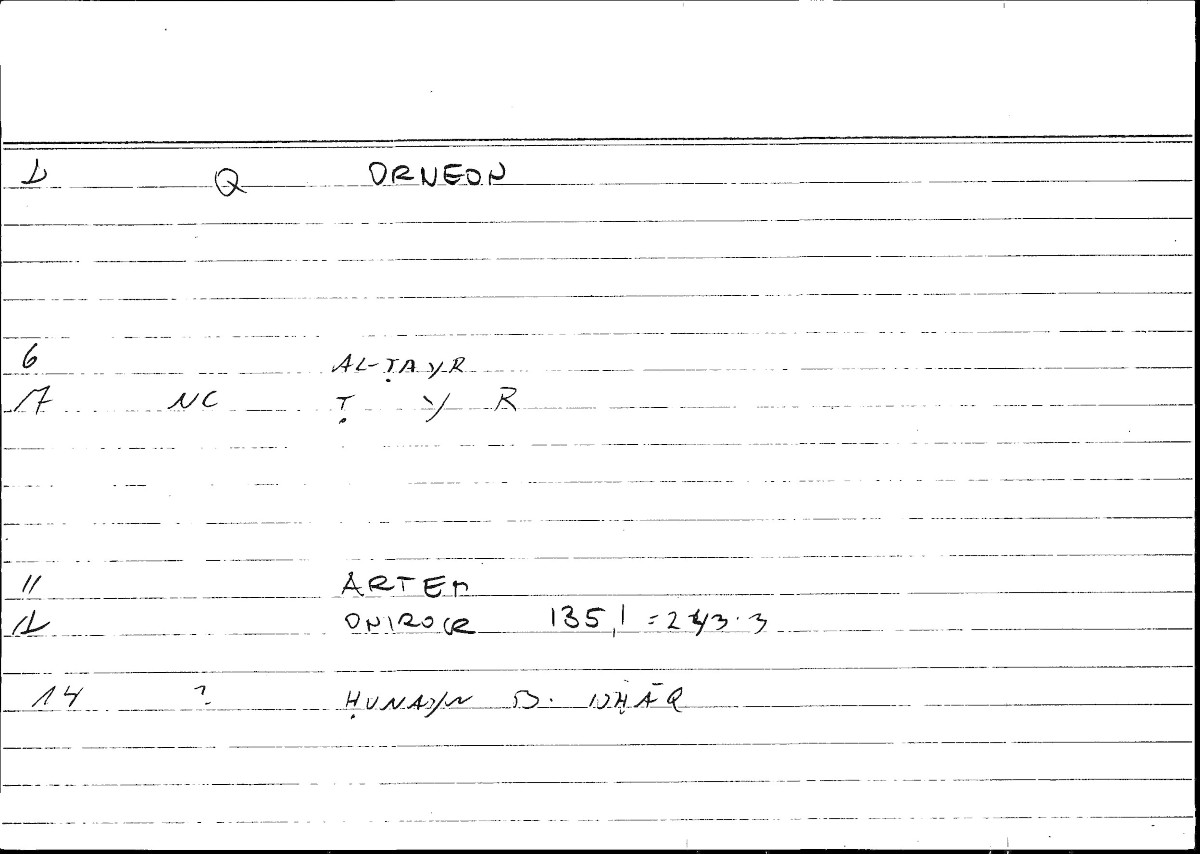 1 Q ORNEON
6 AL-ṬAYR
17 NC Ṭ Y R
11 ARTEM
12 ONIROCR 135,1 = 243.3
14 ? ḤUNAYN B. ISḤĀQ